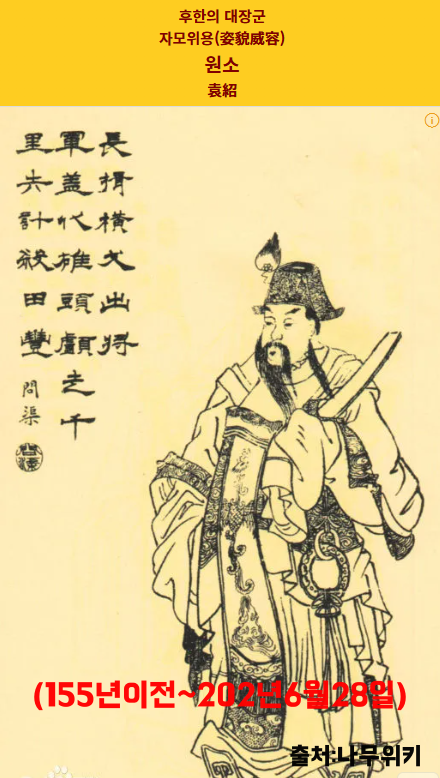 후한의 대장군
자모위용(姿貌威容)
원소
袁紹
長揖橫出將
軍蓋代雄頭顱走千
里失計殺田豐
問渠
(155년이전~202년6월28일)
출처:나무위키